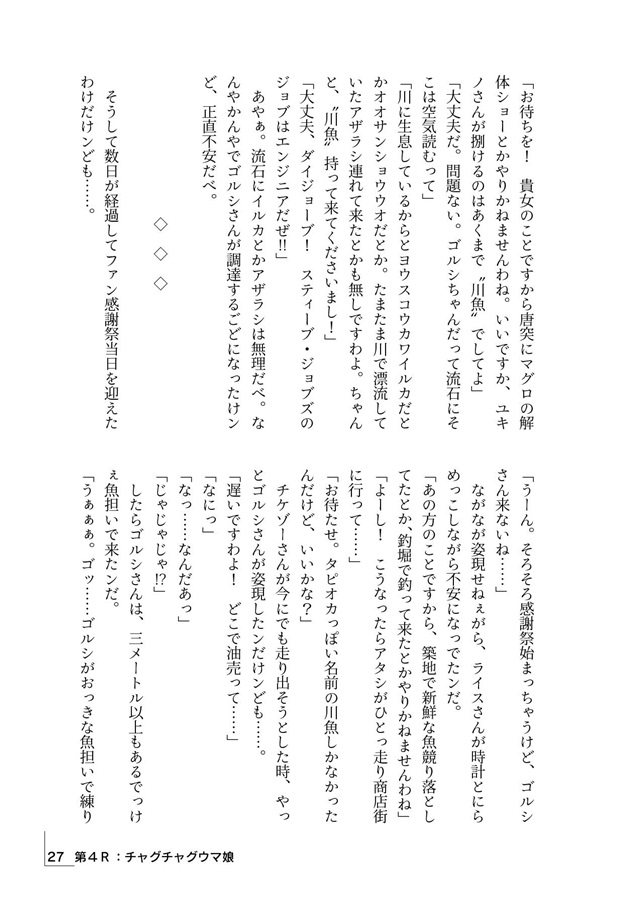 「お待ちを！　貴女のことですから唐突にマグロの解
体ショーとかやりかねませんわね。いいですか、ユキ
ノさんが捌けるのはあくまで〝川魚〟でしてよ」
「大丈夫だ。問題ない。ゴルシちゃんだって流石にそ
こは空気読むって」
「川に生息しているからとヨウスコウカワイルカだと
かオオサンショウウオだとか。たまたま川で漂流して
いたアザラシ連れて来たとかも無しですわよ。ちゃん
と、〝川魚〟持って来てくださいまし！」
「大丈夫、ダイジョーブ！　スティーブ・ジョブズの
ジョブはエンジニアだぜ!!」
　あやぁ。流石にイルカとかアザラシは無理だべ。な
んやかんやでゴルシさんが調達するごどになったけン
ど、正直不安だべ。
◇　◇　◇
　そうして数日が経過してファン感謝祭当日を迎えた
わけだけンども……。
「うーん。そろそろ感謝祭始まっちゃうけど、ゴルシ
さん来ないね……」
　ながなが姿現せねぇがら、ライスさんが時計とにら
めっこしながら不安になっでたンだ。
「あの方のことですから、築地で新鮮な魚競り落とし
てたとか、釣堀で釣って来たとかやりかねませんわね」
「よーし！　こうなったらアタシがひとっ走り商店街
に行って……」
「お待たせ。タピオカっぽい名前の川魚しかなかった
んだけど、いいかな？」
　チケゾーさんが今にでも走り出そうとした時、やっ
とゴルシさんが姿現したンだけンども……。
「遅いですわよ！　どこで油売って……」
「なにっ」
「なっ……なんだあっ」
「じゃじゃじゃ!?」
　したらゴルシさんは、三メートル以上もあるでっけ
ぇ魚担いで来たンだ。
「うぁぁぁ。ゴッ……ゴルシがおっきな魚担いで練り
27　第４Ｒ：チャグチャグウマ娘